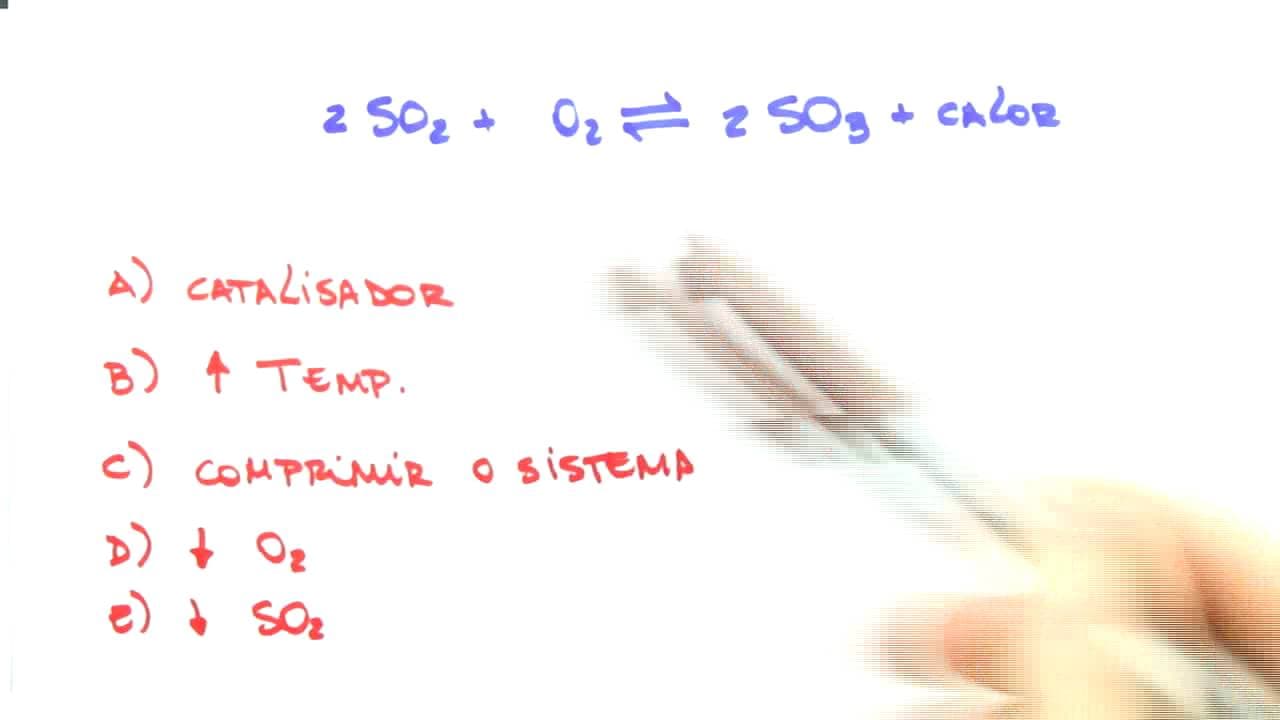 2 SO₂ + O₂ ⇌ 2 SO₃ + CALOR
A) CATALISADOR
B) ↑ TEMP.
C) COMPRIMIR O SISTEMA
D) ↓ O₂
E) ↓ SO₂